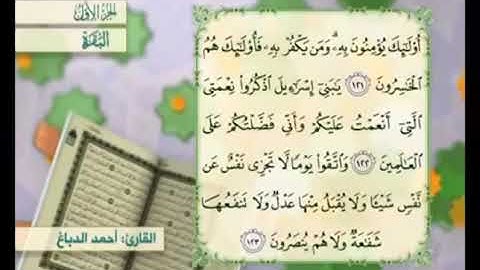 الجزء الأول
البقرة
أُوْلَـٰٓئِكَ يُؤْمِنُونَ بِهِۦۗ وَمَن يَكْفُرْ بِهِۦ فَأُوْلَـٰٓئِكَ هُمُ
ٱلْخَـٰسِرُونَ ١٢١ يَـٰبَنِىٓ إِسْرَٰٓءِيلَ ٱذْكُرُوا۟ نِعْمَتِىَ
ٱلَّتِىٓ أَنْعَمْتُ عَلَيْكُمْ وَأَنِّى فَضَّلْتُكُمْ عَلَى
ٱلْعَـٰلَمِينَ ١٢٢ وَٱتَّقُوا۟ يَوْمًا لَّا تَجْزِى نَفْسٌ عَن
نَّفْسٍ شَيْـًٔا وَلَا يُقْبَلُ مِنْهَا عَدْلٌ وَلَا تَنفَعُهَا
شَفَـٰعَةٌ وَلَا هُمْ يُنصَرُونَ ١٢٣
القارئ: أحمد الدباغ